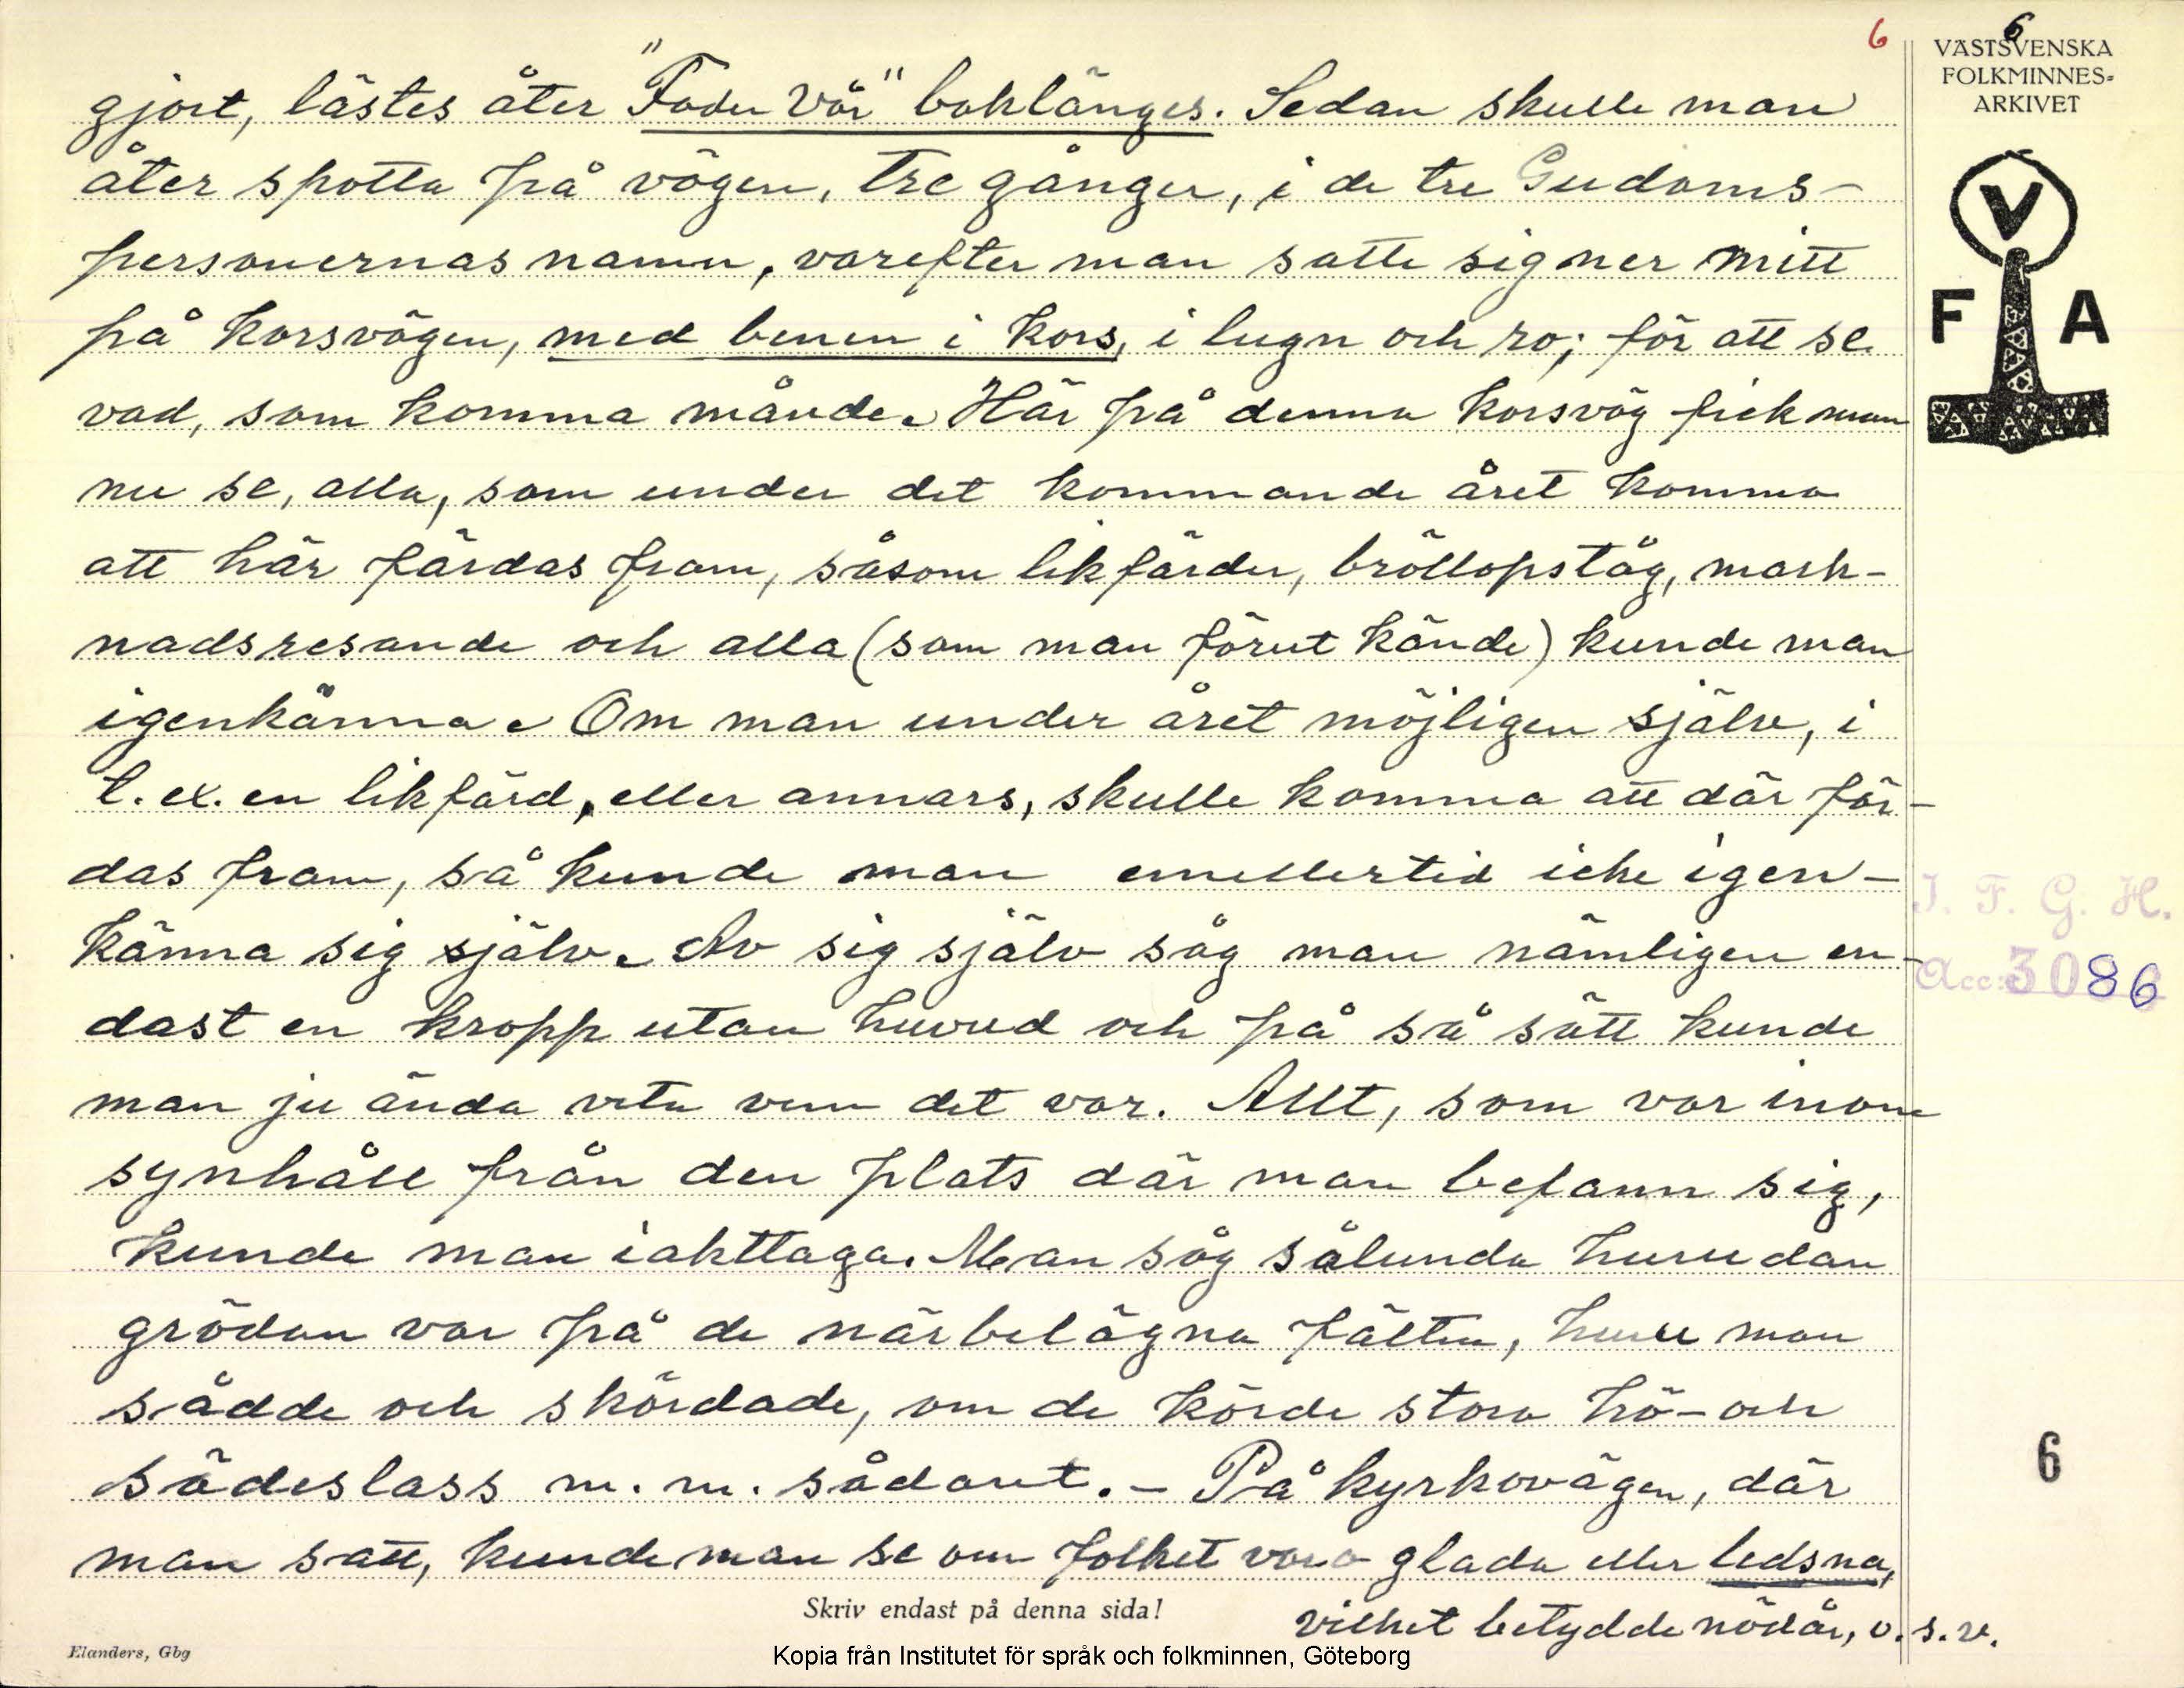 6
6
VÄSTSVENSKA
FOLKMINNES-
ARKIVET
gjort, lästes åter "Fader Vår" baklänges. Sedan skulle man
åter spotta på vägen, tre gånger, i de tre Gudoms-
personernas namn, varefter man satte sig ner mitt
på korsvägen, med benen i kors, i lugn och ro; för att se
vad, som komma månde. Här på denna korsväg fick man
nu se, alla, som under det kommande året komma
att här färdas fram, såsom likfärder, bröllopståg, mark-
nadsresande och alla (som man förut kände) kunde man
igenkänna. Om man under året möjligen själv, i
t. ex. en likfärd, eller annars, skulle komma att där fär-
das fram, så kunde man emellertid icke igen-
känna sig själv. Av sig själv såg man nämligen en-
dast en kropp utan huvud och på så sätt kunde
man ju ända veta vem det var. Allt, som var inom
synhåll från den plats där man befann sig,
kunde man iakttaga. Man såg sålunda hurudan
grödan var på de närbelägna fälten, huru man
sådde och skördade, om de körde stora hö- och
sädeslass m. m. sådant. - På kyrkovägen, där
man satt, kunde man se om folket voro glada eller ledsna,
vilket betydde nödår, o. s. v.
V
F A
I. F. G. H.
Acc: 3086
6
Skriv endast på denna sida!
Elanders, Gbg
Kopia från Institutet för språk och folkminnen, Göteborg